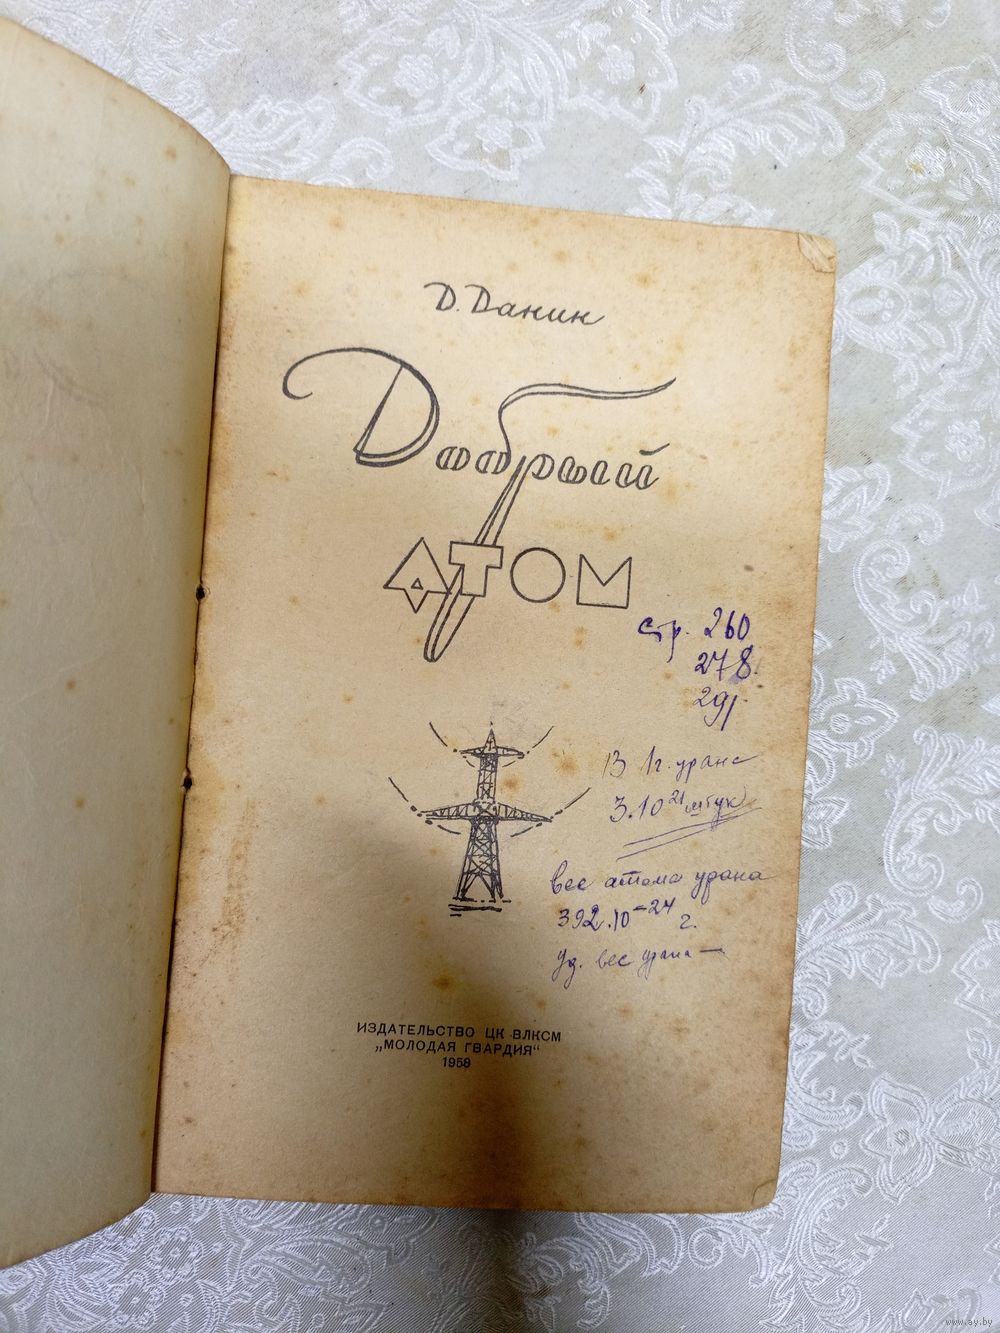 Д. Данин
Добрый
АТОМ
стр. 260
278.
291
В 1 г. урана
3.10²¹ штук
вес атома урана
392.10⁻²⁴ г.
Уд. вес урана —
ИЗДАТЕЛЬСТВО ЦК ВЛКСМ
„МОЛОДАЯ ГВАРДИЯ“
1958
www.ay.by